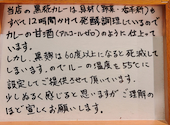 当店の黒糀カレーは食材(野菜・塩麹)を
すべて12時間かけて発酵調理しているので
カレーの甘酒(アルコールゼロ)のように仕上って
います。
しかし、黒麹は60度以上になると死滅して
しまいます。のでルーの温度を55℃に
設定してご提供させて頂いています。
少しぬるく感じると思いますがご理解の
ほど宜しくお願いします。